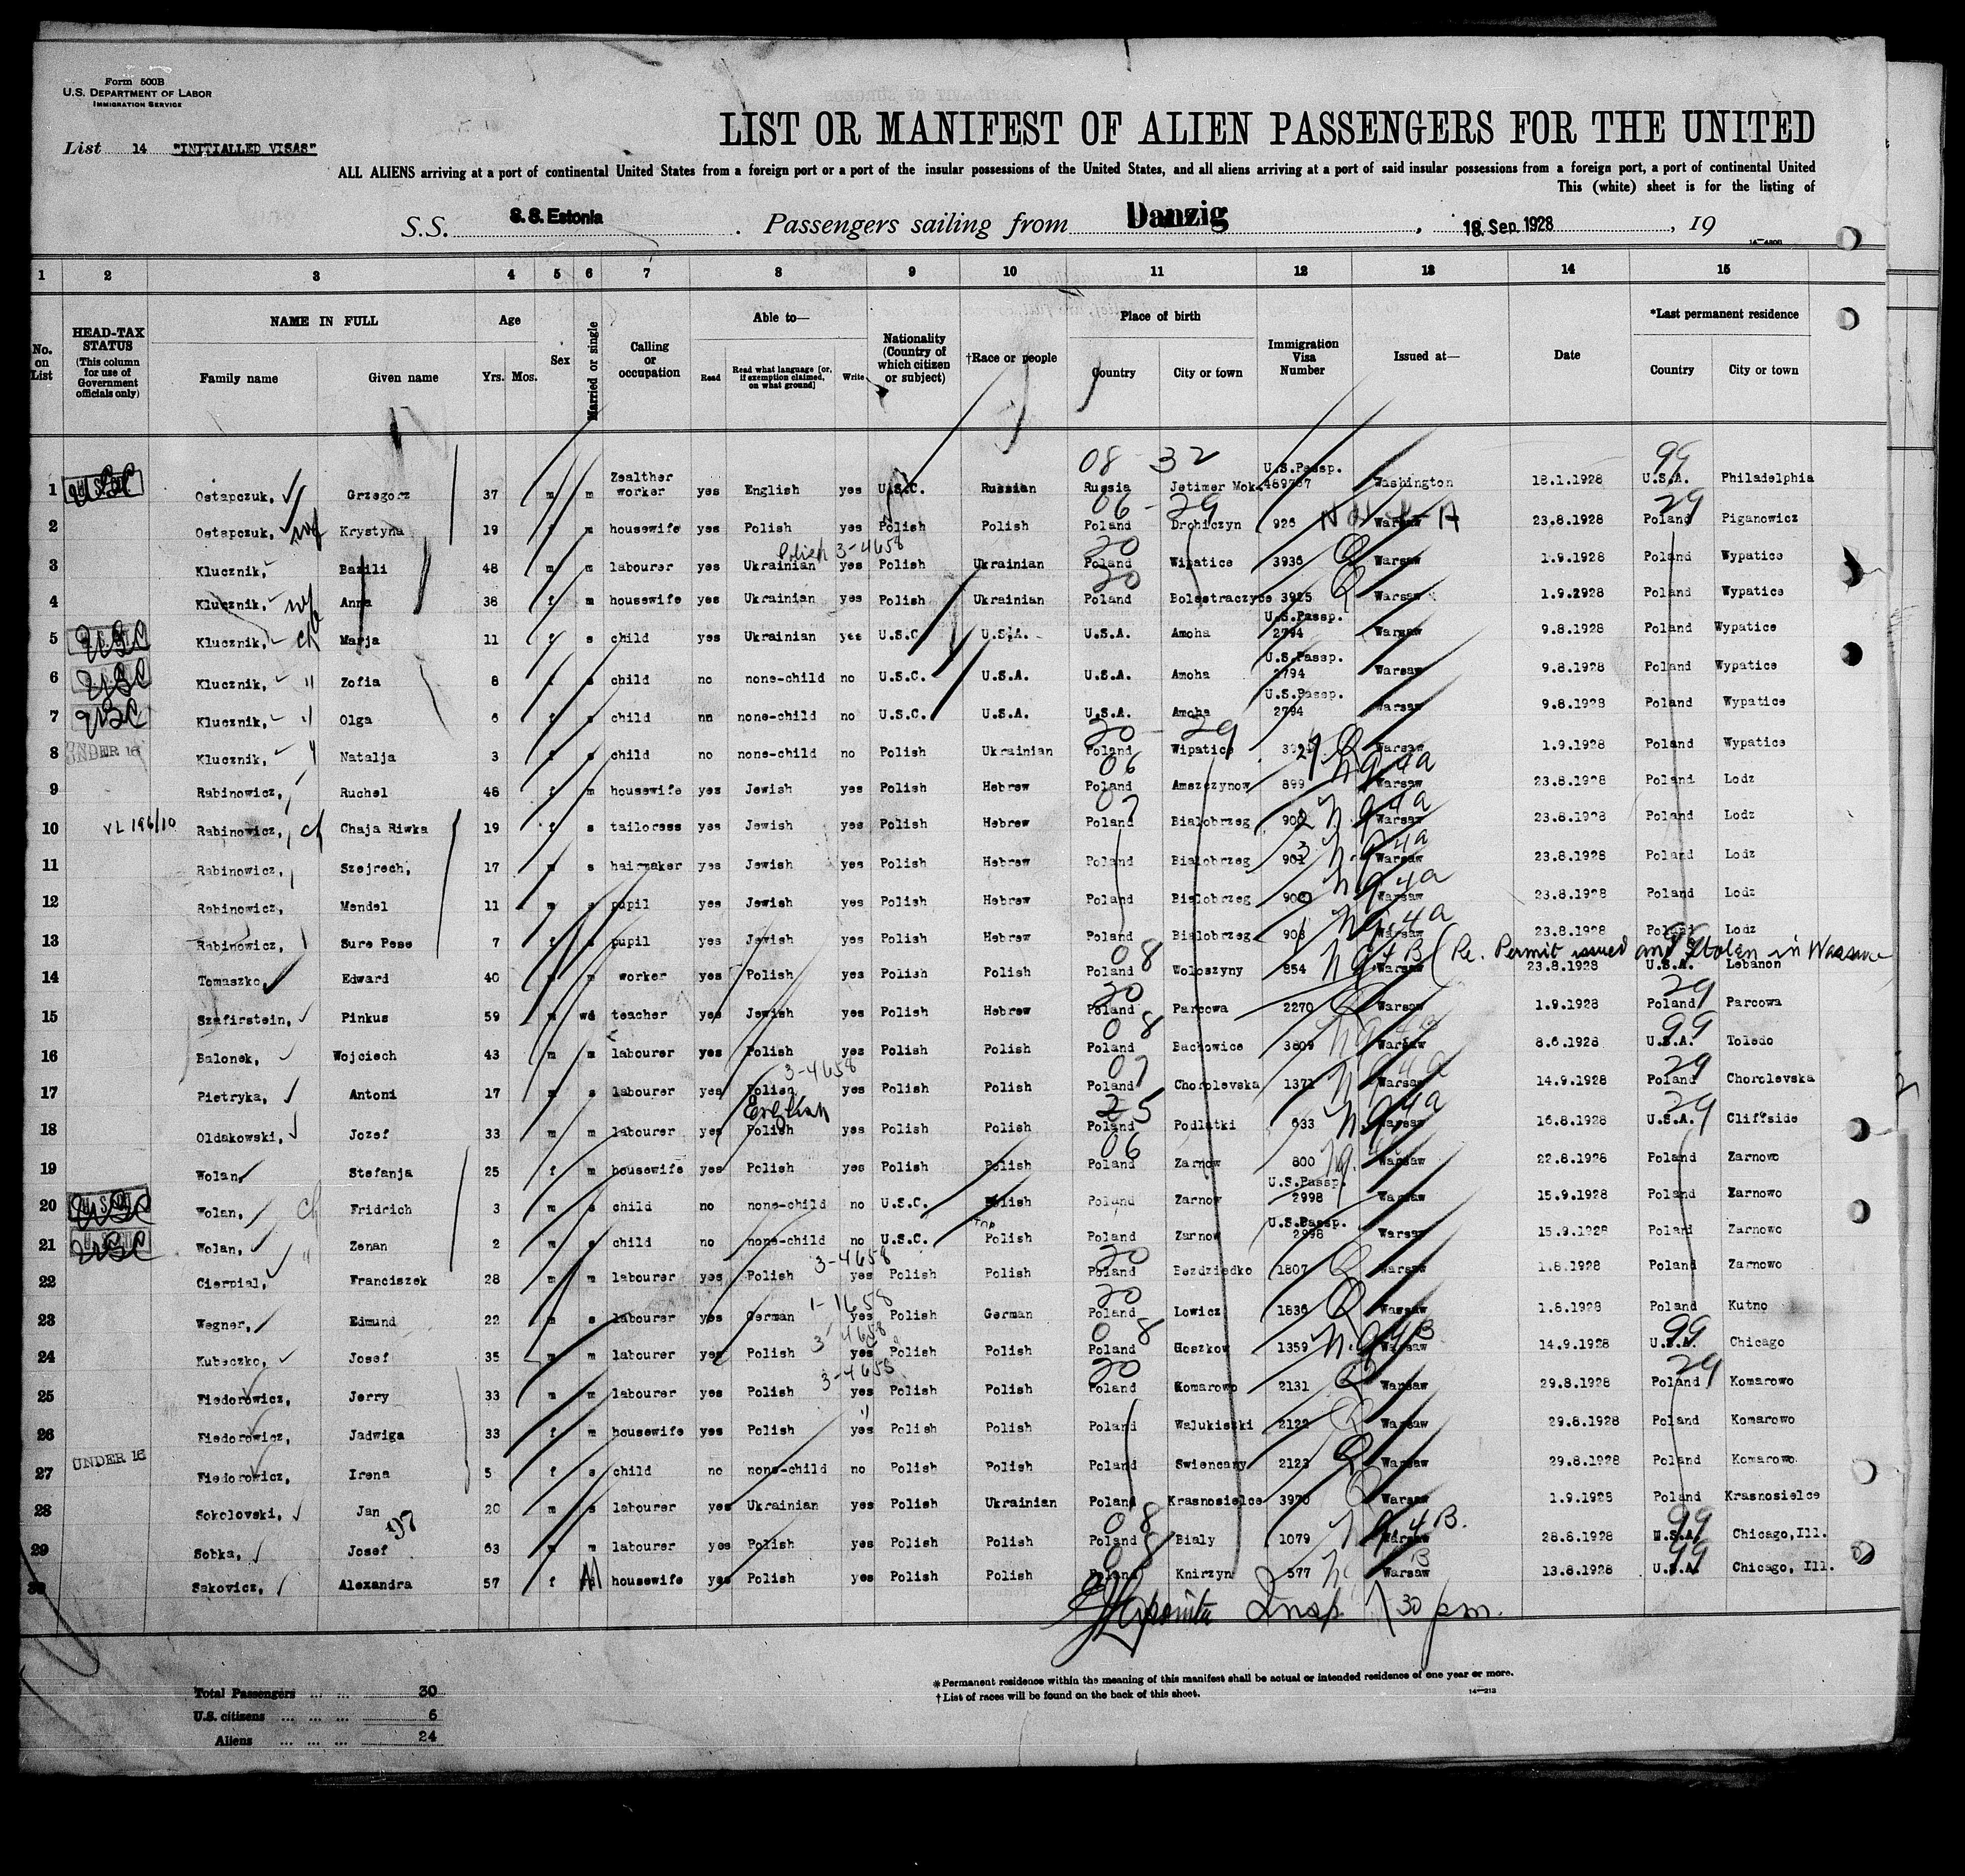 Form 500B
U.S. DEPARTMENT OF LABOR
IMMIGRATION SERVICE
List 14 "INITIALLED VISAS"
LIST OR MANIFEST OF ALIEN PASSENGERS FOR THE UNITED
ALL ALIENS arriving at a port of continental United States from a foreign port or a port of the insular possessions of the United States, and all aliens arriving at a port of said insular possessions from a foreign port, a port of continental United
This (white) sheet is for the listing of
S.S. S. S. Estonia . Passengers sailing from Danzig , 18. Sep. 1928 , 19
1 2 3 4 5 6 7 8 9 10 11 12 13 14 15
No. on List
HEAD-TAX STATUS (This column for use of Government officials only)
NAME IN FULL Family name Given name
Age Yrs. Mos.
Sex
Married or single
Calling or occupation
Able to— Read Read what language [or, if exemption claimed, on what ground] Write
Nationality (Country of which citizen or subject)
†Race or people
Place of birth Country City or town
Immigration Visa Number
Issued at—
Date
*Last permanent residence Country City or town
08 - 32 99
1 USC Ostapczuk, Grzegorz 37 m m Zealther worker yes English yes U.S.C. Russian Russia Jetimer Mok. U.S.Passp. 469767 Washington 18.1.1928 U.S.A. Philadelphia
06 - 29 29
2 Ostapczuk, wf Krystyna 19 f m housewife yes Polish yes Polish Polish Poland Drohiczyn 926 Warsaw 23.8.1928 Poland Piganowicz
Polish 3-4658 20
3 Klucznik, Bazili 48 m m labourer yes Ukrainian yes Polish Ukrainian Poland Wipatice 3936 Q Warsaw 1.9.1928 Poland Wypatice
20
4 Klucznik, wf Anna 38 f m housewife yes Ukrainian yes Polish Ukrainian Poland Bolestraczyce 3925 Q Warsaw 1.9.2928 Poland Wypatice
5 USC Klucznik, ch Marja 11 f s child yes Ukrainian yes U.S.C U.S.A. U.S.A. Amoha U.S.Passp. 2794 Warsaw 9.8.1928 Poland Wypatice
6 USC Klucznik, " Zofia 8 f s child no none-child no U.S.C. U.S.A. U.S.A. Amoha U.S.Passp. 2794 Warsaw 9.8.1928 Poland Wypatice
7 USC Klucznik, " Olga 6 f s child no none-child no U.S.C. U.S.A. U.S.A. Amoha U.S.Passp. 2794 Warsaw 9.8.1928 Poland Wypatice
20 - 29
8 UNDER 16 Klucznik, " Natalja 3 f s child no none-child no Polish Ukrainian Poland Wipatice Q Warsaw 1.9.1928 Poland Wypatice
06
9 Rabinowicz, Ruchel 46 f m housewife yes Jewish yes Polish Hebrew Poland Amszczynow 899 nq 4a Warsaw 23.8.1928 Poland Lodz
07
10 VL 196/10 Rabinowicz, ch Chaja Riwka 19 f s tailoress yes Jewish yes Polish Hebrew Poland Bialobrzeg 902 nq 4a Warsaw 23.8.1928 Poland Lodz
11 Rabinowicz, Szejrech, 17 m s hairmaker yes Jewish yes Polish Hebrew Poland Bialobrzeg nq 4a Warsaw 23.8.1928 Poland Lodz
12 Rabinowicz, Mendel 11 m s pupil yes Jewish yes Polish Hebrew Poland Bialobrzeg nq 4a Warsaw 23.8.1928 Poland Lodz
13 Rabinowicz, Sure Pese 7 f s pupil yes Jewish yes Polish Hebrew Poland Bialobrzeg nq 4a Warsaw 23.8.1928 Poland Lodz
08 (Re. Permit issued and stolen in Warsaw
14 Tomaszko, Edward 40 m m worker yes Polish yes Polish Polish Poland Woloszyny 854 nq 4B Warsaw 23.8.1928 U.S.A. Lebanon
20 29
15 Szafirstein, Pinkus 59 m wd teacher yes Jewish yes Polish Hebrew Poland Parcowa 2270 Q Warsaw 1.9.1928 Poland Parcowa
08 99
16 Balonek, Wojciech 43 m m labourer yes Polish yes Polish Polish Poland Bachowice 3809 nq 4B Warsaw 8.6.1928 U.S.A. Toledo
3-4658 07 29
17 Pietryka, Antoni 17 m s labourer yes Polish yes Polish Polish Poland Chorolevska 1371 nq 4a Warsaw 14.9.1928 Poland Chorolevska
English 25 29
18 Oldakowski, Jozef 33 m m labourer yes Polish yes Polish Polish Poland Podlatki 633 nq 4a Warsaw 16.8.1928 U.S.A. Cliffside
06
19 Wolan, Stefanja 25 f m housewife yes Polish yes Polish Polish Poland Zarnow 800 Warsaw 22.8.1928 Poland Zarnovo
20 USC Wolan, ch Fridrich 3 m s child no none-child no U.S.C. Polish Poland Zarnow U.S.Passp. 2998 Warsaw 15.9.1928 Poland Zarnowo
21 USC Wolan, " Zenan 2 m s child no none-child no U.S.C. Polish Poland Zarnow U.S.Passp. 2998 Warsaw 15.9.1928 Poland Zarnowo
3-4658 20
22 Cierpial, Franciszek 28 m m labourer yes Polish yes Polish Polish Poland Bezdziedko 1807 Q Warsaw 1.8.1928 Poland Zarnowo
1-1658 20
23 Wegner, Edmund 22 m s labourer yes German yes Polish German Poland Lowicz 1836 Q Warsaw 1.8.1928 Poland Kutno
3-4658 08 99
24 Kubeczko, Josef 35 m m labourer yes Polish yes Polish Polish Poland Hoszkow 1359 nq 4B Warsaw 14.9.1928 U.S.A. Chicago
3-4658 20 29
25 Fiedorowicz, Jerry 33 m m labourer yes Polish yes Polish Polish Poland Komarowo 2131 Q Warsaw 29.8.1928 Poland Komarowo
26 Fiedorowicz, Jadwiga 33 f m housewife yes Polish yes Polish Polish Poland Wajukiszki 2122 Q Warsaw 29.8.1928 Poland Komarowo
27 UNDER 16 Fiedorowicz, Irena 5 f s child no none-child no Polish Polish Poland Swiencany 2123 Q Warsaw 29.8.1928 Poland Komarowo
28 Sokolovski, Jan 20 m s labourer yes Ukrainian yes Polish Ukrainian Poland Krasnosielce 3970 Q Warsaw 1.9.1928 Poland Krasnosielce
97 08 99
29 Sobka, Josef 63 m m labourer yes Polish yes Polish Polish Poland Bialy 1079 nq 4B. Warsaw 28.8.1928 U.S.A. Chicago,Ill.
08 99
30 Sakovicz, Alexandra 57 f M housewife yes Polish yes Polish Polish Poland Knirzyn 577 Warsaw 13.8.1928 U.S.A. Chicago, Ill.
Insp. 1 30 pm.
*Permanent residence within the meaning of this manifest shall be actual or intended residence of one year or more.
†List of races will be found on the back of this sheet.
14—213
Total Passengers ... ... 30
U.S. citizens ... ... ... 6
Aliens ... ... ... 24